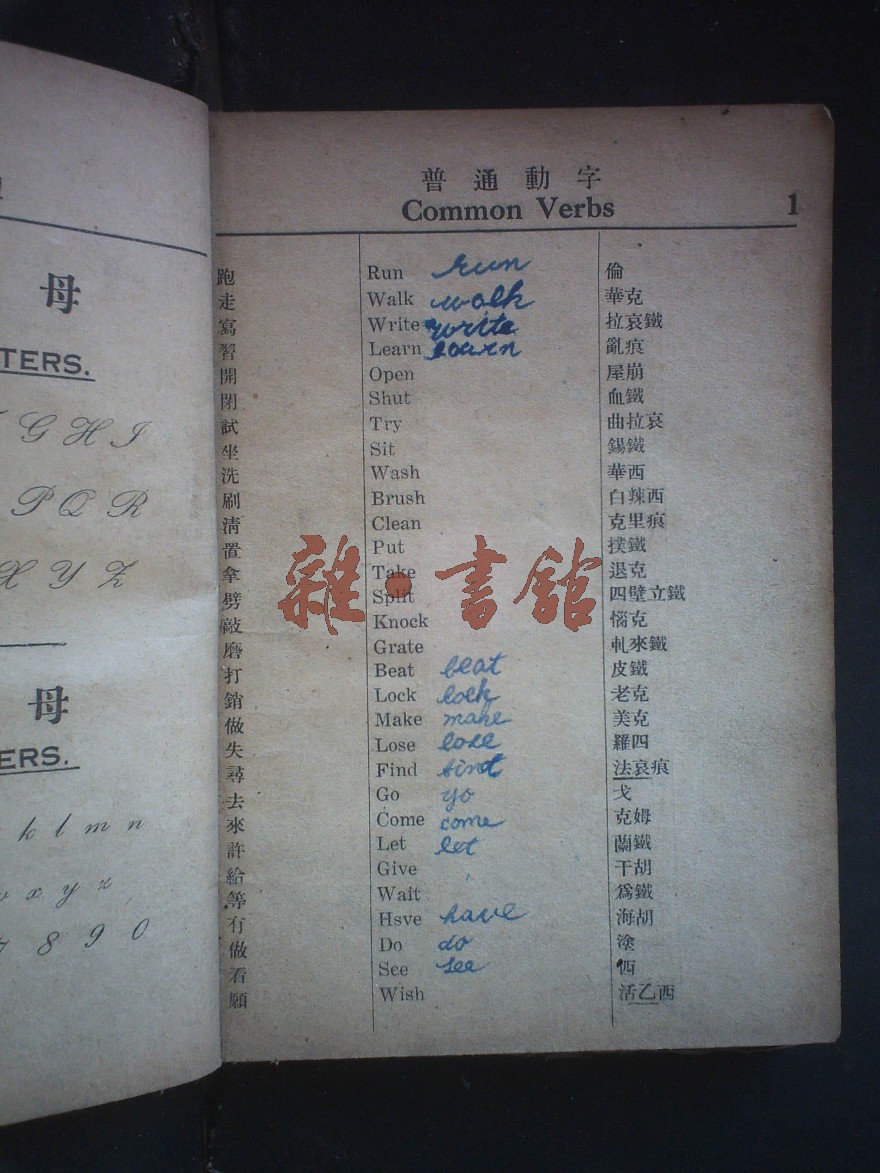 母
TTERS.
G H I
P Q R
X Y Z
母
ERS.
k l m n
v x y z
7 8 9 0
普通動字
Common Verbs 1
跑 Run run 倫
走 Walk walk 華克
寫 Write write 拉哀鐵
習 Learn learn 亂痕
開 Open 屋崩
閉 Shut 血鐵
試 Try 曲拉哀
坐 Sit 錫鐵
洗 Wash 華西
刷 Brush 白辣西
清 Clean 克里痕
置 Put 撲鐵
拿 Take 退克
劈 Split 四壁立鐵
敲 Knock 惱克
磨 Grate 軋來鐵
打 Beat beat 皮鐵
銷 Lock lock 老克
做 Make make 美克
失 Lose lose 羅四
尋 Find find 法哀痕
去 Go go 戈
來 Come come 克姆
許 Let let 蘭鐵
給 Give 干胡
等 Wait 爲鐵
有 Hsve have 海胡
做 Do do 塗
看 See see 西
願 Wish 活乙西
雜·書館